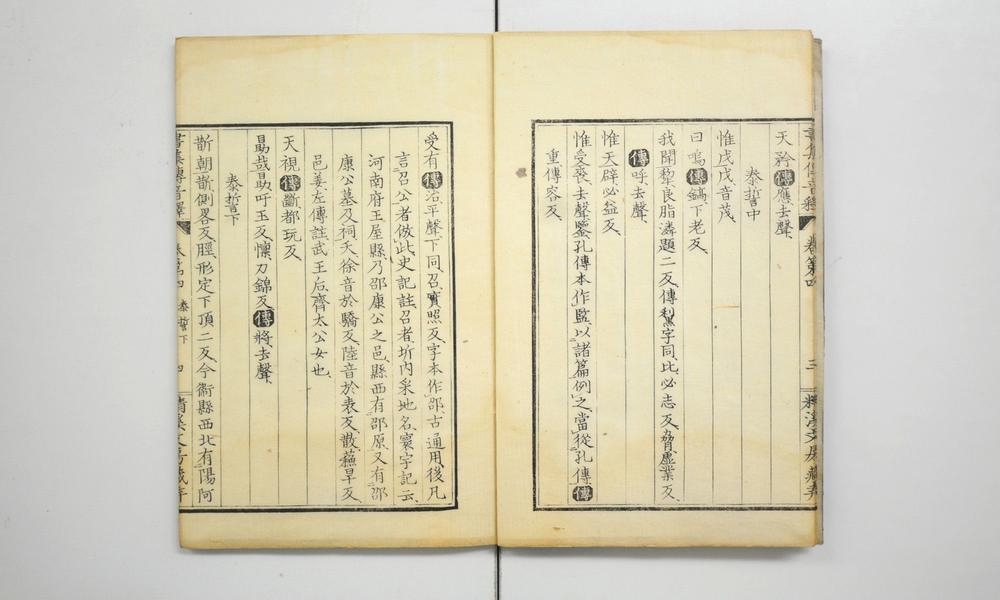 天矜傳應去聲
泰誓中
惟戊戊音茂
曰嗚傳鎬下老反
我聞犂良脂潾題二反傳𥝢字同比必志反脅虛業反
傳呼去聲
惟天辟必益反
惟受喪去聲鑒孔傳本作監以諸篇例之當從孔傳傳
重傳容反
書集傳音釋 卷第四 三
受有傳治平聲下同召實照反字本作邵古通用後凡
言召公者倣此史記註召者圻内采地名寰宇記云
河南府王屋縣乃邵康公之邑縣西有邵原又有邵
康公墓及祠夭徐音於驕反陸音於表反散蘇旱反
邑姜左傳註武王后齊太公女也
天視傳斷都玩反
勗哉勗吁玉反懍力錦反傳將去聲
泰誓下
斮朝斮側畧反脛形定下頂二反今衞縣西北有陽阿
書集傳音釋 卷第四 泰誓下 四